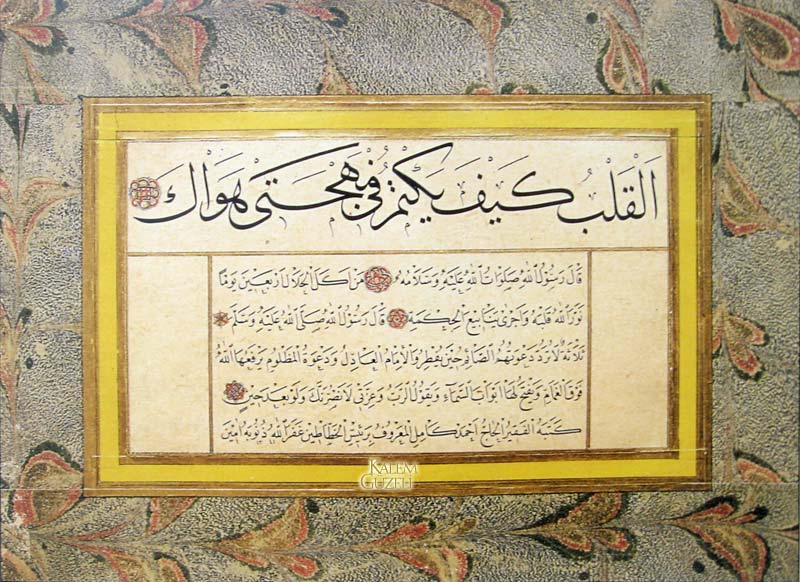 اَلْقَلْبُ كَيْفَ يَكْتُمُ فِى مُهْجَتِى هَوَاكَ
قَالَ رَسُولُ اللهِ صَلَوَاتُ اللهِ عَلَيْهِ وَسَلَامُهُ مَنْ اَكَلَ الْحَلَالَ اَرْبَعِينَ يَوْمًا
نَوَّرَ اللهُ قَلْبَهُ وَاَجْرٰى يَنَابِيعَ الْحِكْمَةِ قَالَ رَسُولُ اللهِ صَلَّى اللهُ عَلَيْهِ وَسَلَّمَ
ثَلَاثَةٌ لَا تُرَدُّ دَعْوَتُهُمْ اَلصَّائِمُ حِينَ يُفْطِرُ وَالْاِمَامُ الْعَادِلُ وَدَعْوَةُ الْمَظْلُومِ يَرْفَعُهَا اللهُ
فَوْقَ الْغَمَامِ وَتُفْتَحُ لَهَا اَبْوَابُ السَّمَاءِ وَيَقُولُ الرَّبُّ وَعِزَّتِى لَاَنْصُرَنَّكَ وَلَوْ بَعْدَ حِينٍ
كَتَبَهُ الْفَقِيرُ الْحَاجُّ اَحْمَدْ كَامِلْ الْمَعْرُوفُ بِرَئِيسِ الْخَطَّاطِينَ غَفَرَ اللهُ ذُنُوبَهُ اٰمِينَ
KALEM
GÜZELİ